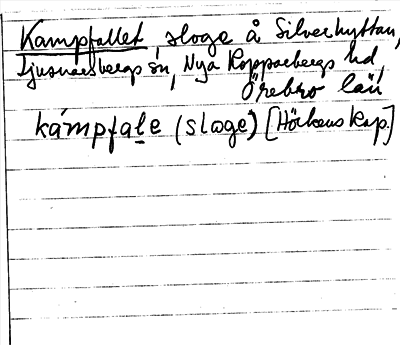 Kampfallet, sloge å Silverhyttan,
Ljusnarsbergs sn, Nya Kopparbergs hd,
Örebro län
kámpfale (sloge) [Hörkens kap.]